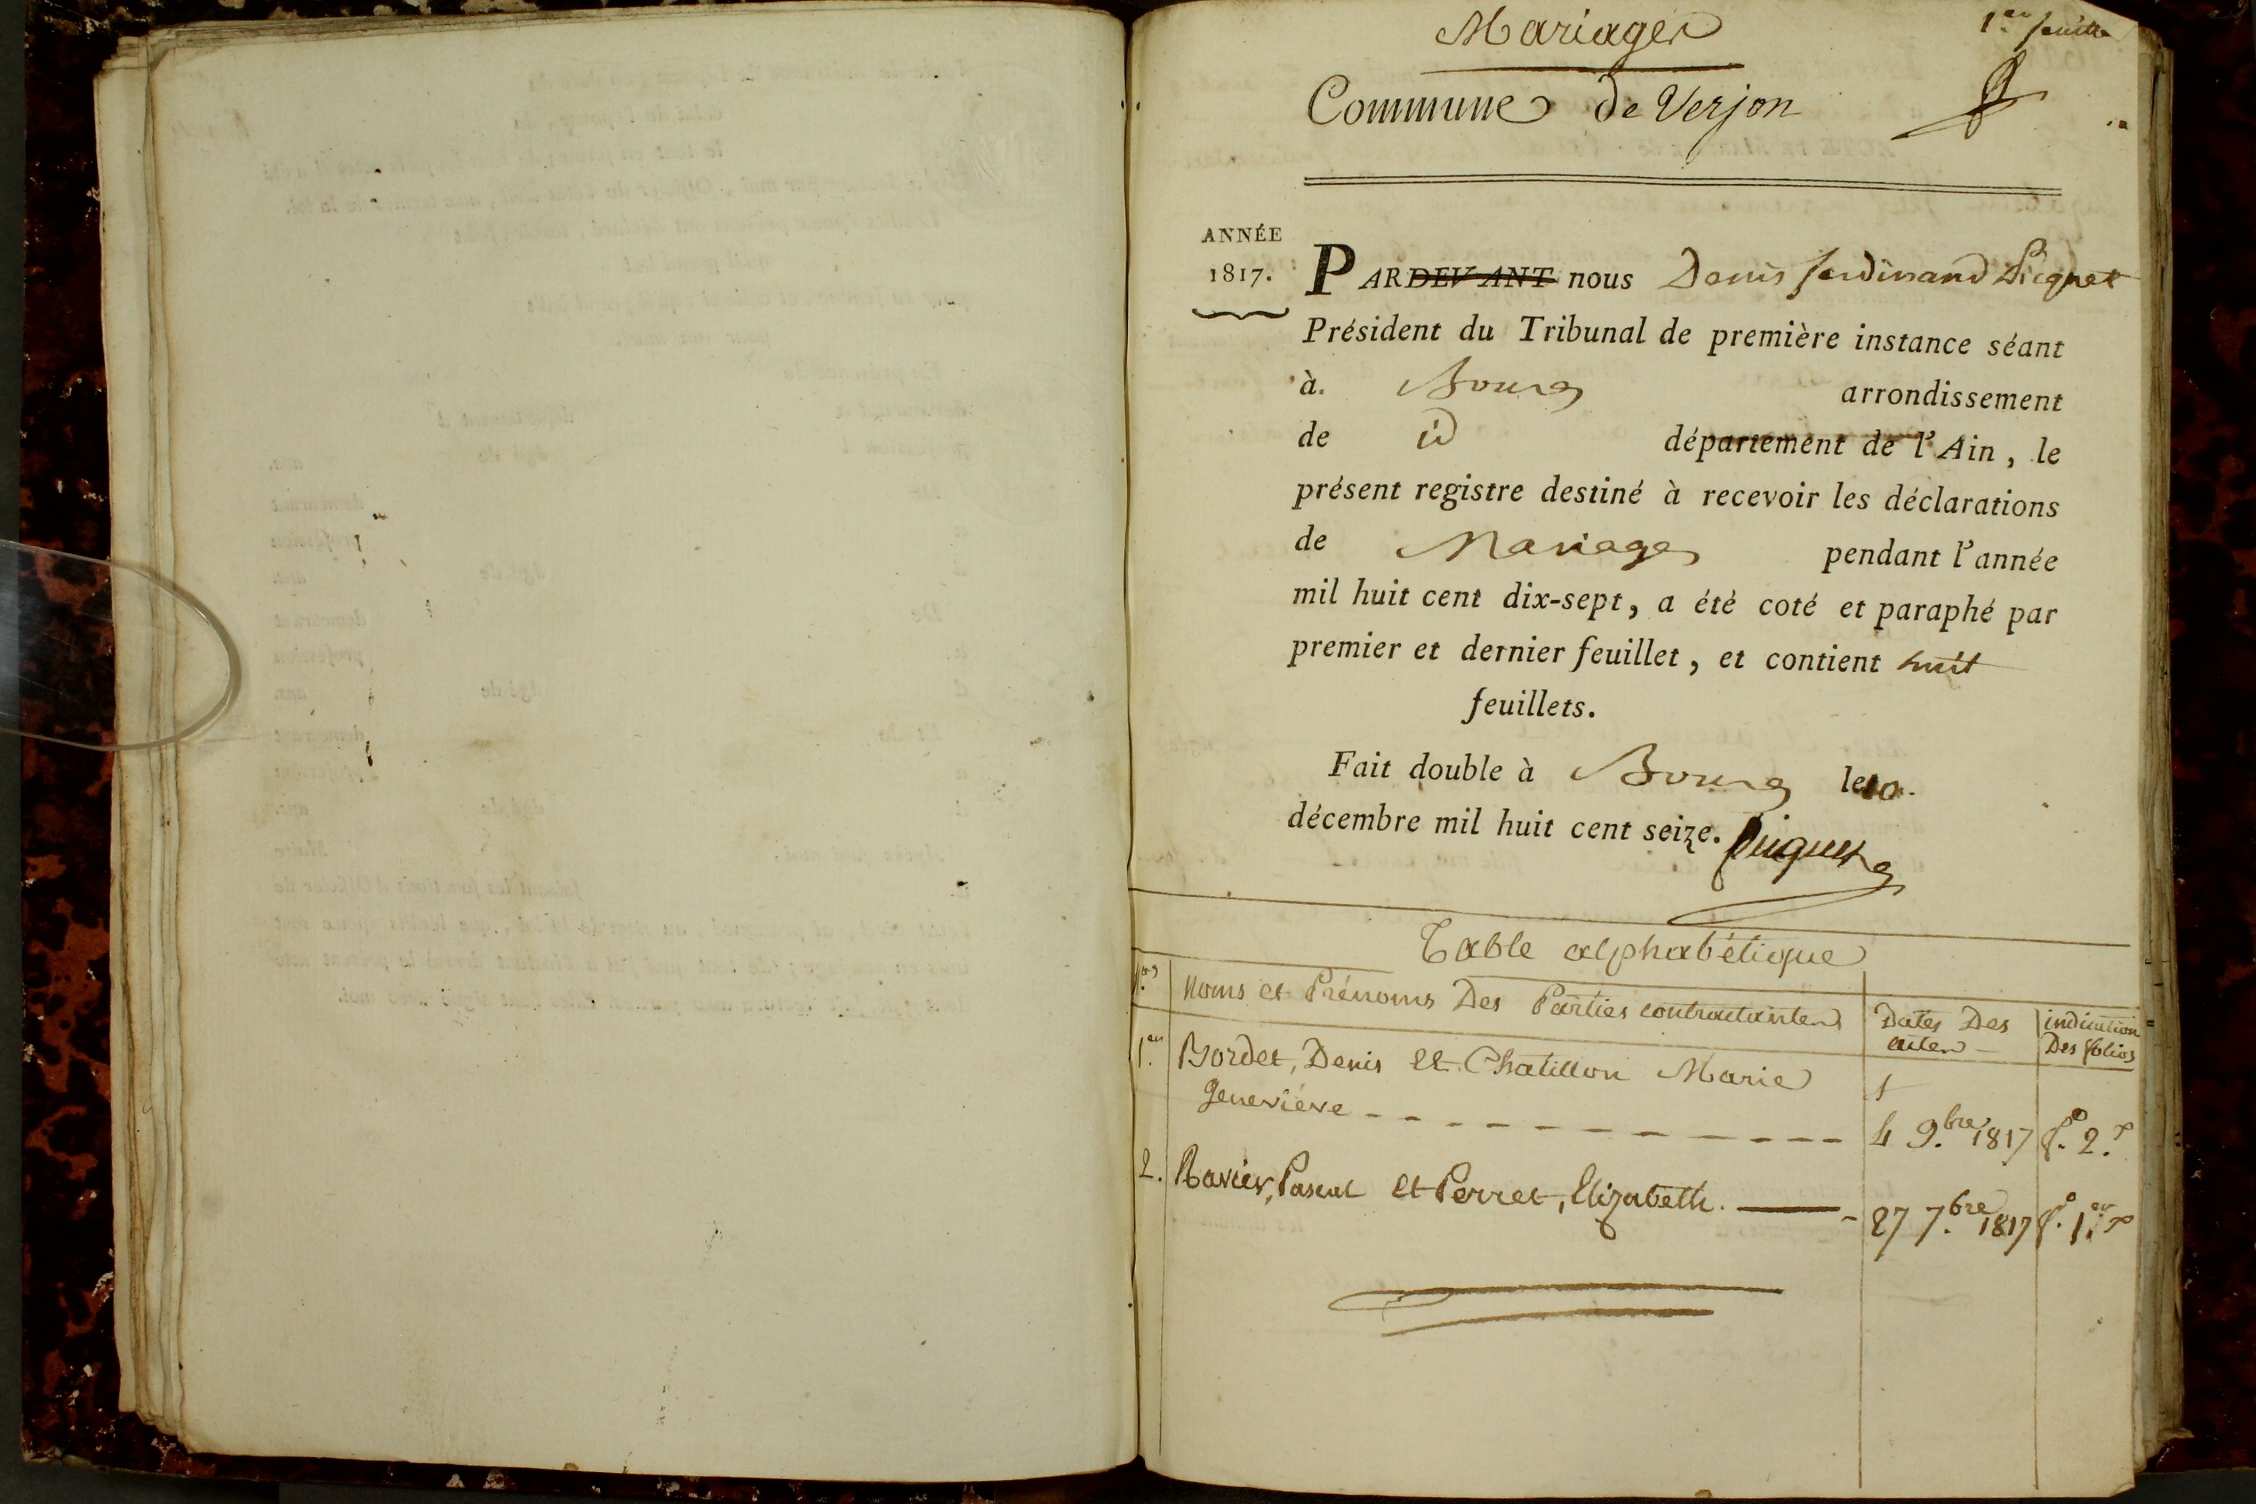 Mariages
1er feuillet
Commune de Verjon
ANNÉE
1817.
PARDEVANT nous Denis ferdinand Piquet
Président du Tribunal de première instance séant
à Bourg arrondissement
de id département de l'Ain, le
présent registre destiné à recevoir les déclarations
de Mariages pendant l'année
mil huit cent dix-sept, a été coté et paraphé par
premier et dernier feuillet, et contient huit
feuillets.
Fait double à Bourg le 10.
décembre mil huit cent seize. Piquet
Table alphabétique
Nos Noms et Prénoms Des Parties contractantes Dates Des actes indication Des folios
1er Bordet, Denis et Chatillon Marie
Geneviève 4 9.bre 1817 f.o 2.
2. Ravier, Pascal et Perret, Elizabeth. 27 7.bre 1817 f.o 1.er